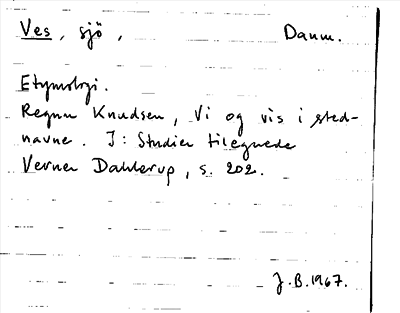 Ves, sjö, Danm.
Etymologi.
Regnar Knudsen, Vi og vis i sted-
navne. I: Studier tilegnede
Verner Dahlerup, s. 202.
J.B. 1967.